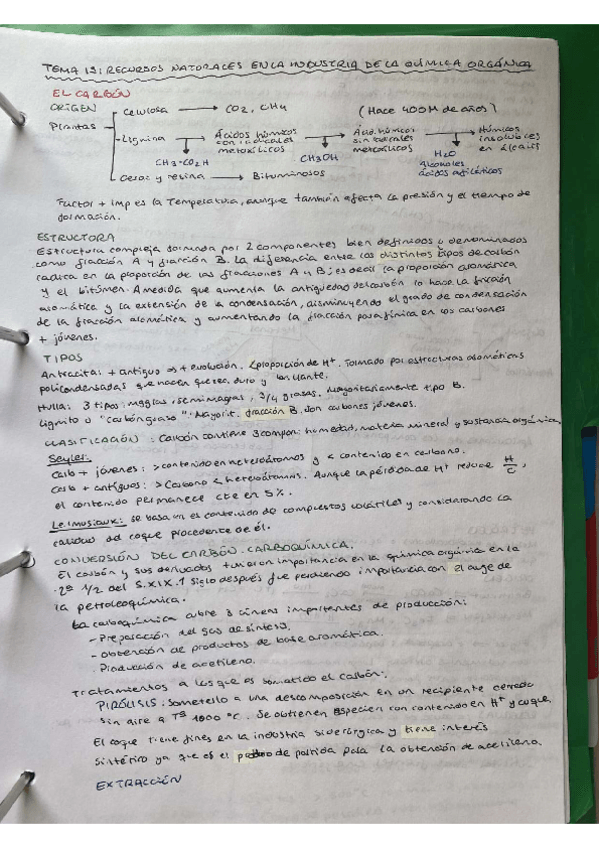 TEMA 12: RECURSOS NATURALES EN LA INDUSTRIA DE LA QUÍMICA ORGÁNICA
EL CARBÓN
ORIGEN
Celulosa → CO2, CH4 (Hace 400M de años)
Plantas
Lignina → Ácidos húmicos con radicales metoxílicos → Ácid. húmicos sin radicales metoxílicos → Húmicos insolubles en álcalis
CH3-CO2H CH3OH H2O
Alcoholes
Ácidos alifáticos
Ceras y resina → Bituminosos
Factor + imp es la Temperatura, aunque también afecta la presión y el tiempo de
formación.
ESTRUCTURA
Estructura compleja formada por 2 componentes bien definidos o denominados
como fracción A y fracción B. La diferencia entre los distintos tipos de carbón
radica en la proporción de las fracciones A y B; es decir la proporción aromática
y el bitumen. A medida que aumenta la antiguedad del carbón lo hace la fracción
aromática y la extensión de la condensación, disminuyendo el grado de condensación
de la fracción aromática y aumentando la fracción parafínica en los carbones
+ jóvenes.
TIPOS
Antracita: + antiguo y + evolución. < proporción de H+. Formado por estructuras aromáticas
policondensadas que hacen que sea duro y brillante.
Hulla: 3 tipos: magras, semimagras, 3/4 grasas. Mayoritariamente tipo B.
Lignito o "carbón graso". Mayorit. fracción B, son carbones jóvenes.
CLASIFICACIÓN: Carbón contiene 3 compon: humedad, materia mineral y sustancia orgánica.
Seyler:
Carb + jóvenes: > contenido en heteroátomos y < contenido en carbono.
Carb + antiguos: > Carbono < heteroátomos. Aunque la pérdida de H+ reduce H/C,
el contenido permanece cte en 5%.
se basa en el contenido de compuestos volátiles y considerando la
calidad del coque procedente de él.
CONVERSIÓN DEL CARBÓN. CARBOQUÍMICA.
El carbón y sus derivados tuvieron importancia en la química orgánica en la
2ª 1/2 del S.XIX. 1 siglo después fue perdiendo importancia con el auge de
la petroleoquímica.
La carboquímica cubre 3 líneas importantes de producción:
- Preparación del gas de síntesis.
- Obtención de productos de base aromática.
- Producción de acetileno.
Tratamientos a los que es sometido el carbón:
PIRÓLISIS: Someterlo a una descomposición en un recipiente cerrado
sin aire a Tª 1000 °C. Se obtienen especies con contenido en H+ y coque.
El coque tiene fines en la industria siderúrgica y tiene interés
sintético ya que es el de partida para la obtención de acetileno.
EXTRACCIÓN